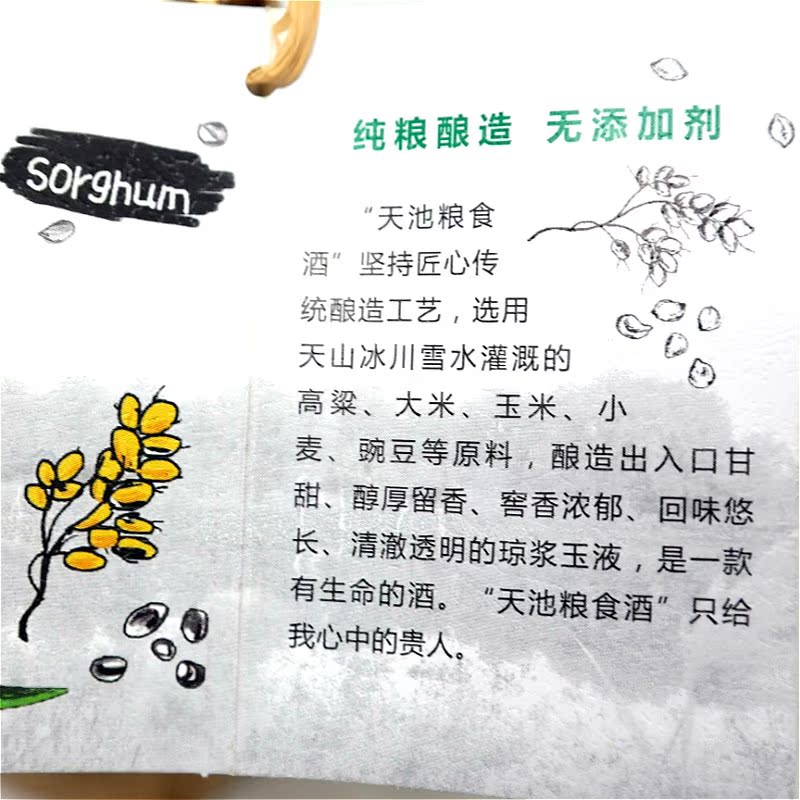 sorghum
纯粮酿造 无添加剂
“天池粮食
酒”坚持匠心传
统酿造工艺，选用
天山冰川雪水灌溉的
高粱、大米、玉米、小
麦、豌豆等原料，酿造出入口甘
甜、醇厚留香、窖香浓郁、回味悠
长、清澈透明的琼浆玉液，是一款
有生命的酒。“天池粮食酒”只给
我心中的贵人。